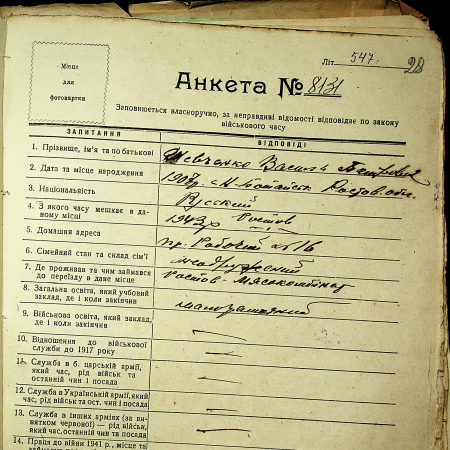 Літ. 547. 20
Місце
для
фотокартки
Анкета № 8131
Заповнюється власноручно, за неправдиві відомості відповідає по закону
військового часу
ЗАПИТАННЯ ВІДПОВІДІ
1. Прізвище, ім'я та по батькові Шевченко Василь Петрович
2. Дата та місце народження 1907, с. Н-Батайск Ростов. обл.
3. Національність Русский
4. З якого часу мешкає в да-
ному місці 1943 Ростов
5. Домашня адреса пр. Рабочий № 16
6. Сімейний стан та склад сім'ї
7. Де проживав та чим займався
до переїзду в дане місце Ростов Мясокомбинат
8. Загальна освіта, який учбовий
заклад, де і коли закінчив малограмотный
9. Військова освіта, який заклад,
де і коли закінчив —
10. Відношення до військової
служби до 1917 року —
11. Служба в б. царській армії,
який час, рід військ та
останній чин і посада —
12. Служба в Українській армії, який
час, рід військ та ост. чин і посада —
13. Служба в інших арміях (за ви-
нятком червоної) — рід військ,
який час, останній чин та посада —
14. Праця до війни 1941 р., місце та